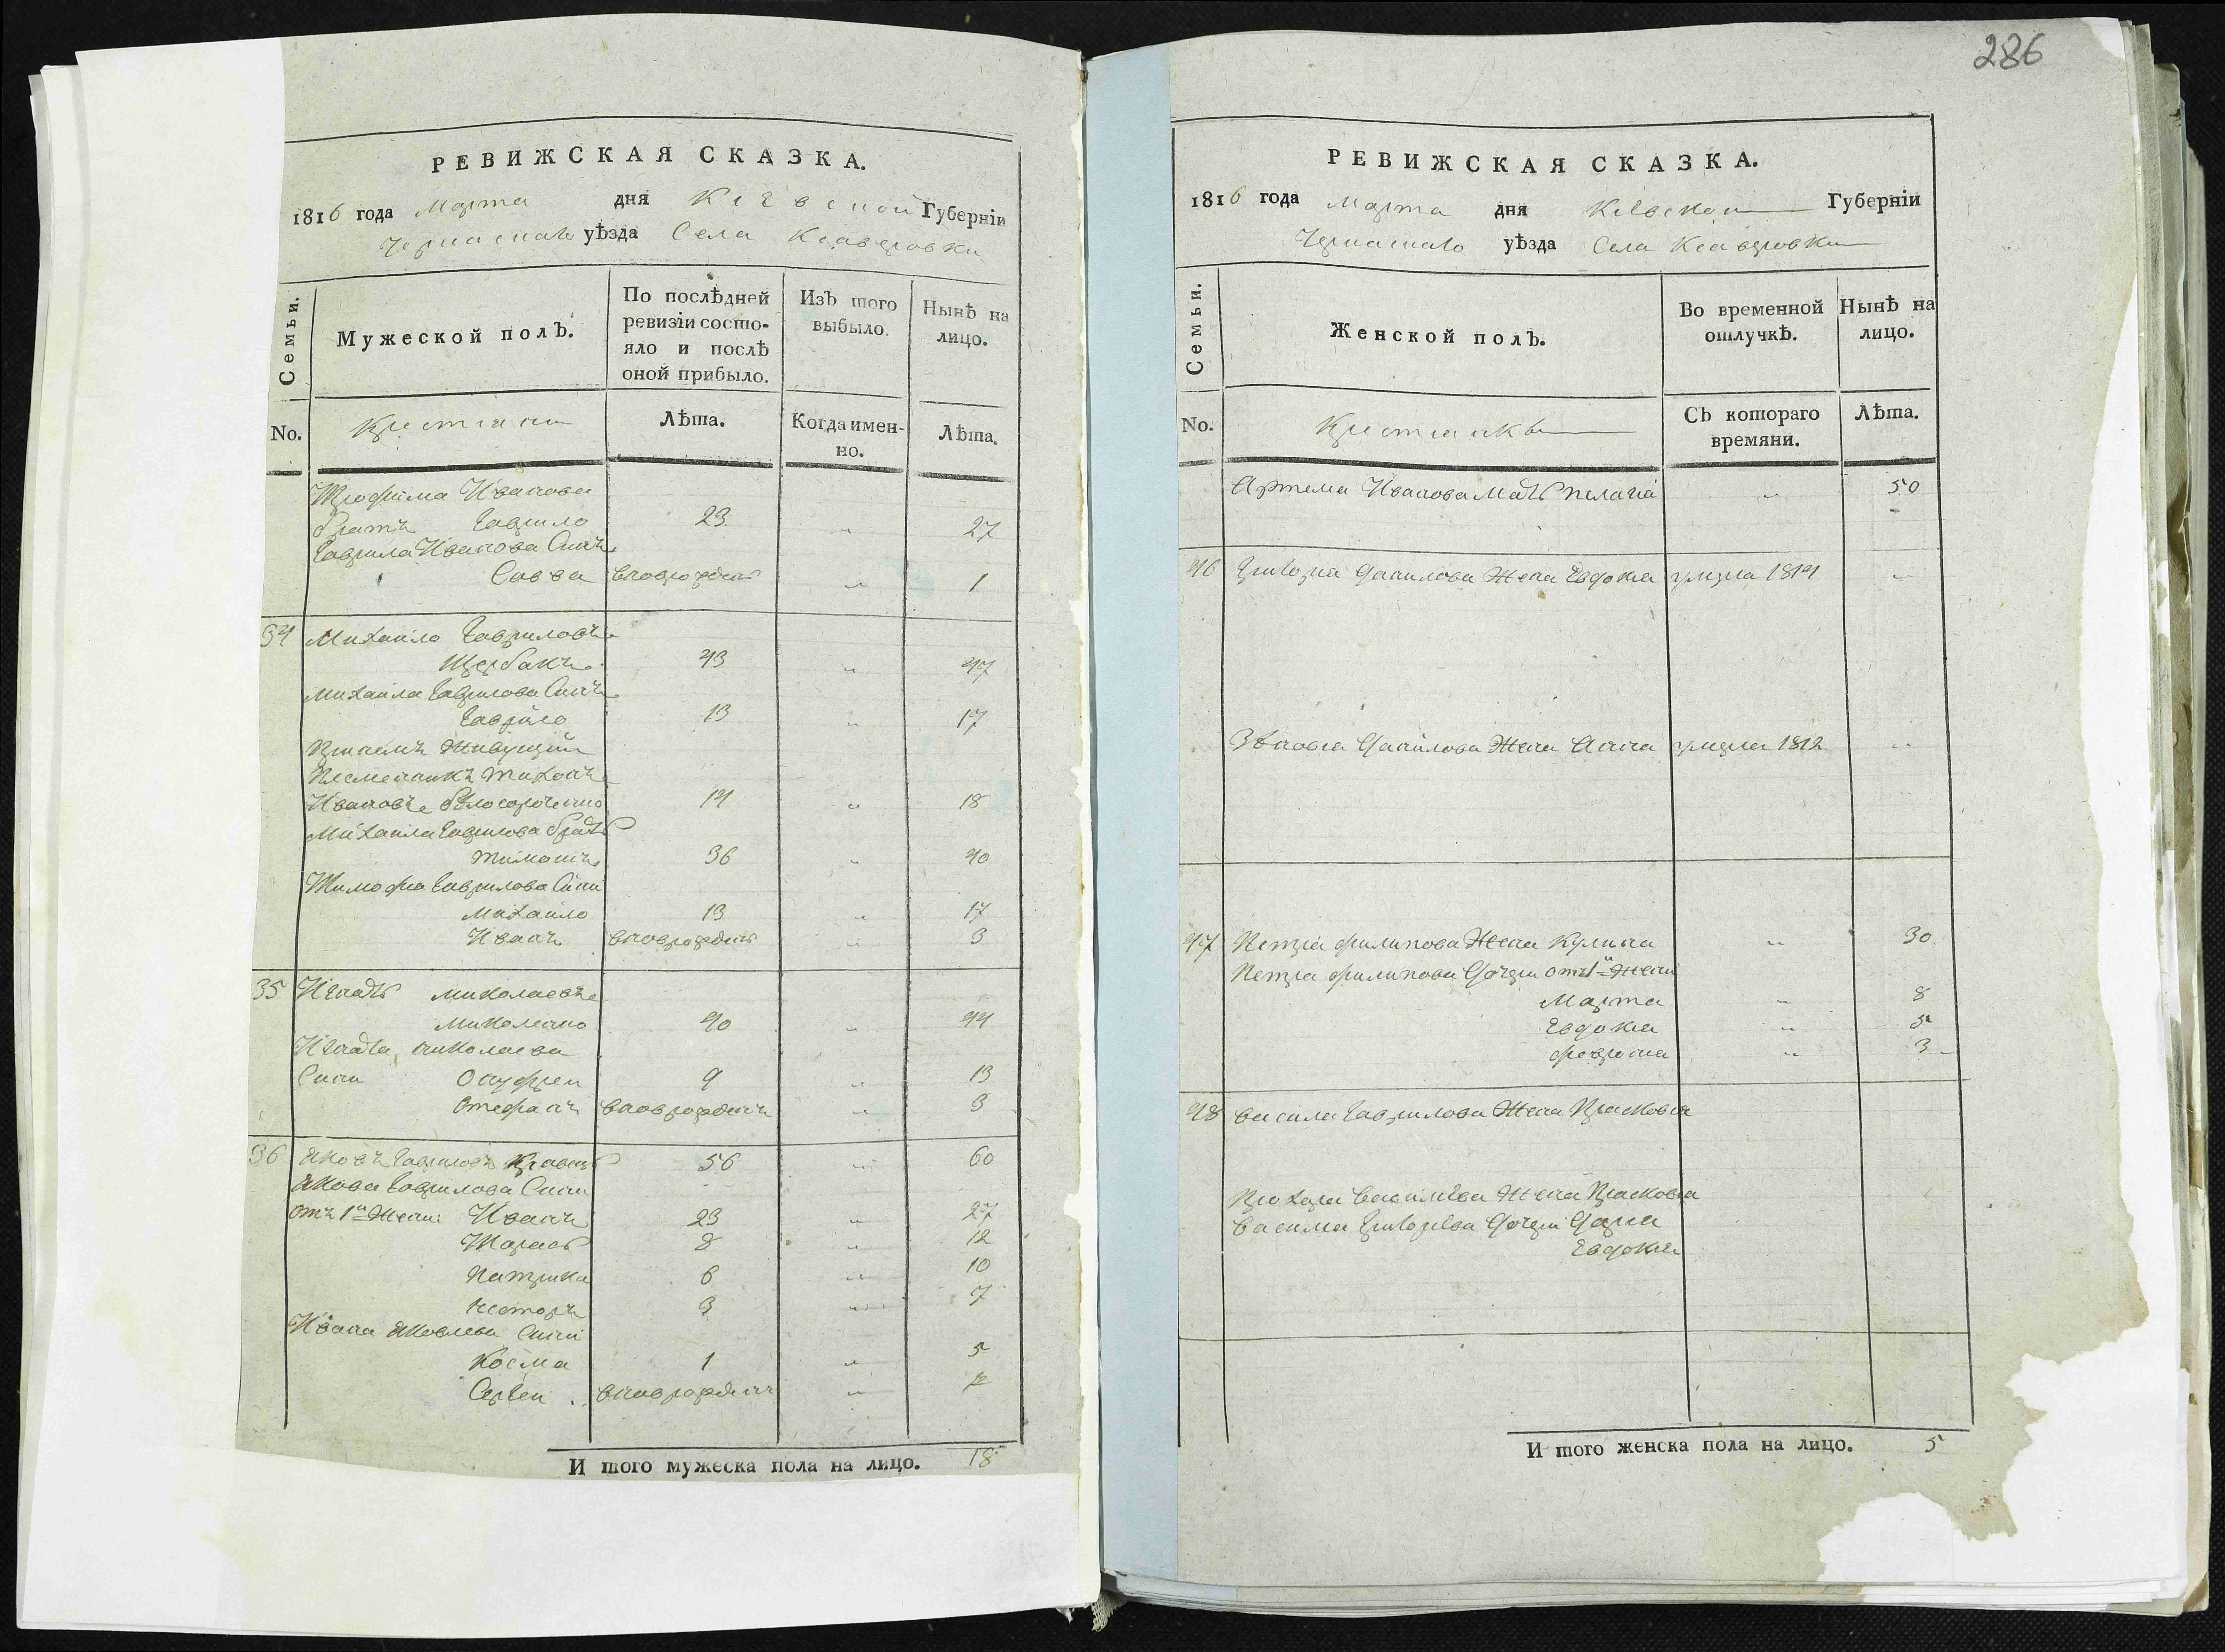 РЕВИЖСКАЯ СКАЗКА.
1816 года Марта дня Кіевской Губерніи
Черкаскаго уѣзда Села Ксаверовки
Семьи.
Мужеской полъ.
По послѣдней ревизіи состояло и послѣ оной прибыло.
Изъ того выбыло.
Нынѣ на лицо.
No.
Крестіяни
Лѣта.
Когда именно.
Лѣта.
Трофима Иванова
братъ Гаврило 23 „ 27
Гаврила Иванова Синъ
Савва вновьрожденъ „ 1
34 Михайло Гавриловъ
Щербакъ 43 „ 47
Михайла Гаврилова Синъ
Гаврило 13 „ 17
Приемъ Живущій
Племенникъ Тихонъ
Ивановъ 14 „ 18
Михайла Гаврилова братъ
36 „ 40
Тимофея Гаврилова Сини
Михайло 13 „ 17
Иванъ вновьрожденъ „ 3
35 Игнатъ Миколаевъ
Миколенко 40 „ 44
Игната Николаева
Сини Онуфрей 9 „ 13
Стефанъ вновьрожденъ „ 3
36 Яковъ Гавриловъ Кравецъ 56 „ 60
Якова Гаврилова Сини
отъ 1й Жени: Иванъ 23 „ 27
Тарасъ 8 „ 12
Патрика 6 „ 10
Несторъ 3 „ 7
Ивана Яковлева Сини
Косма 1 „ 5
Сергей вновьрожденъ „
И того мужеска пола на лицо. 18
286
РЕВИЖСКАЯ СКАЗКА.
1816 года Марта дня Кіевской Губерніи
Черкаскаго уѣзда Села Ксаверовки
Семьи.
Женской полъ.
Во временной отлучкѣ.
Нынѣ на лицо.
No.
Крестіянки
Съ котораго времяни.
Лѣта.
Артема Иванова Мать Пелагія „ 50
46 Григорія Данилова Жена Евдокія умерла 1814 „
Зѣновія Данилова Жена Анна умерла 1812 „
47 Петра Филипова Жена Кулина „ 30
Петра Филипова Дочери отъ 1й Жени
Марта „ 8
Евдокія „ 5
Феврония „ 3
48 Василя Гаврилова Жена Прасковія
Прохора Василѣва Жена Прасковія
Василия Григориѣва Дочери Дария
Евдокия
И того женска пола на лицо. 5